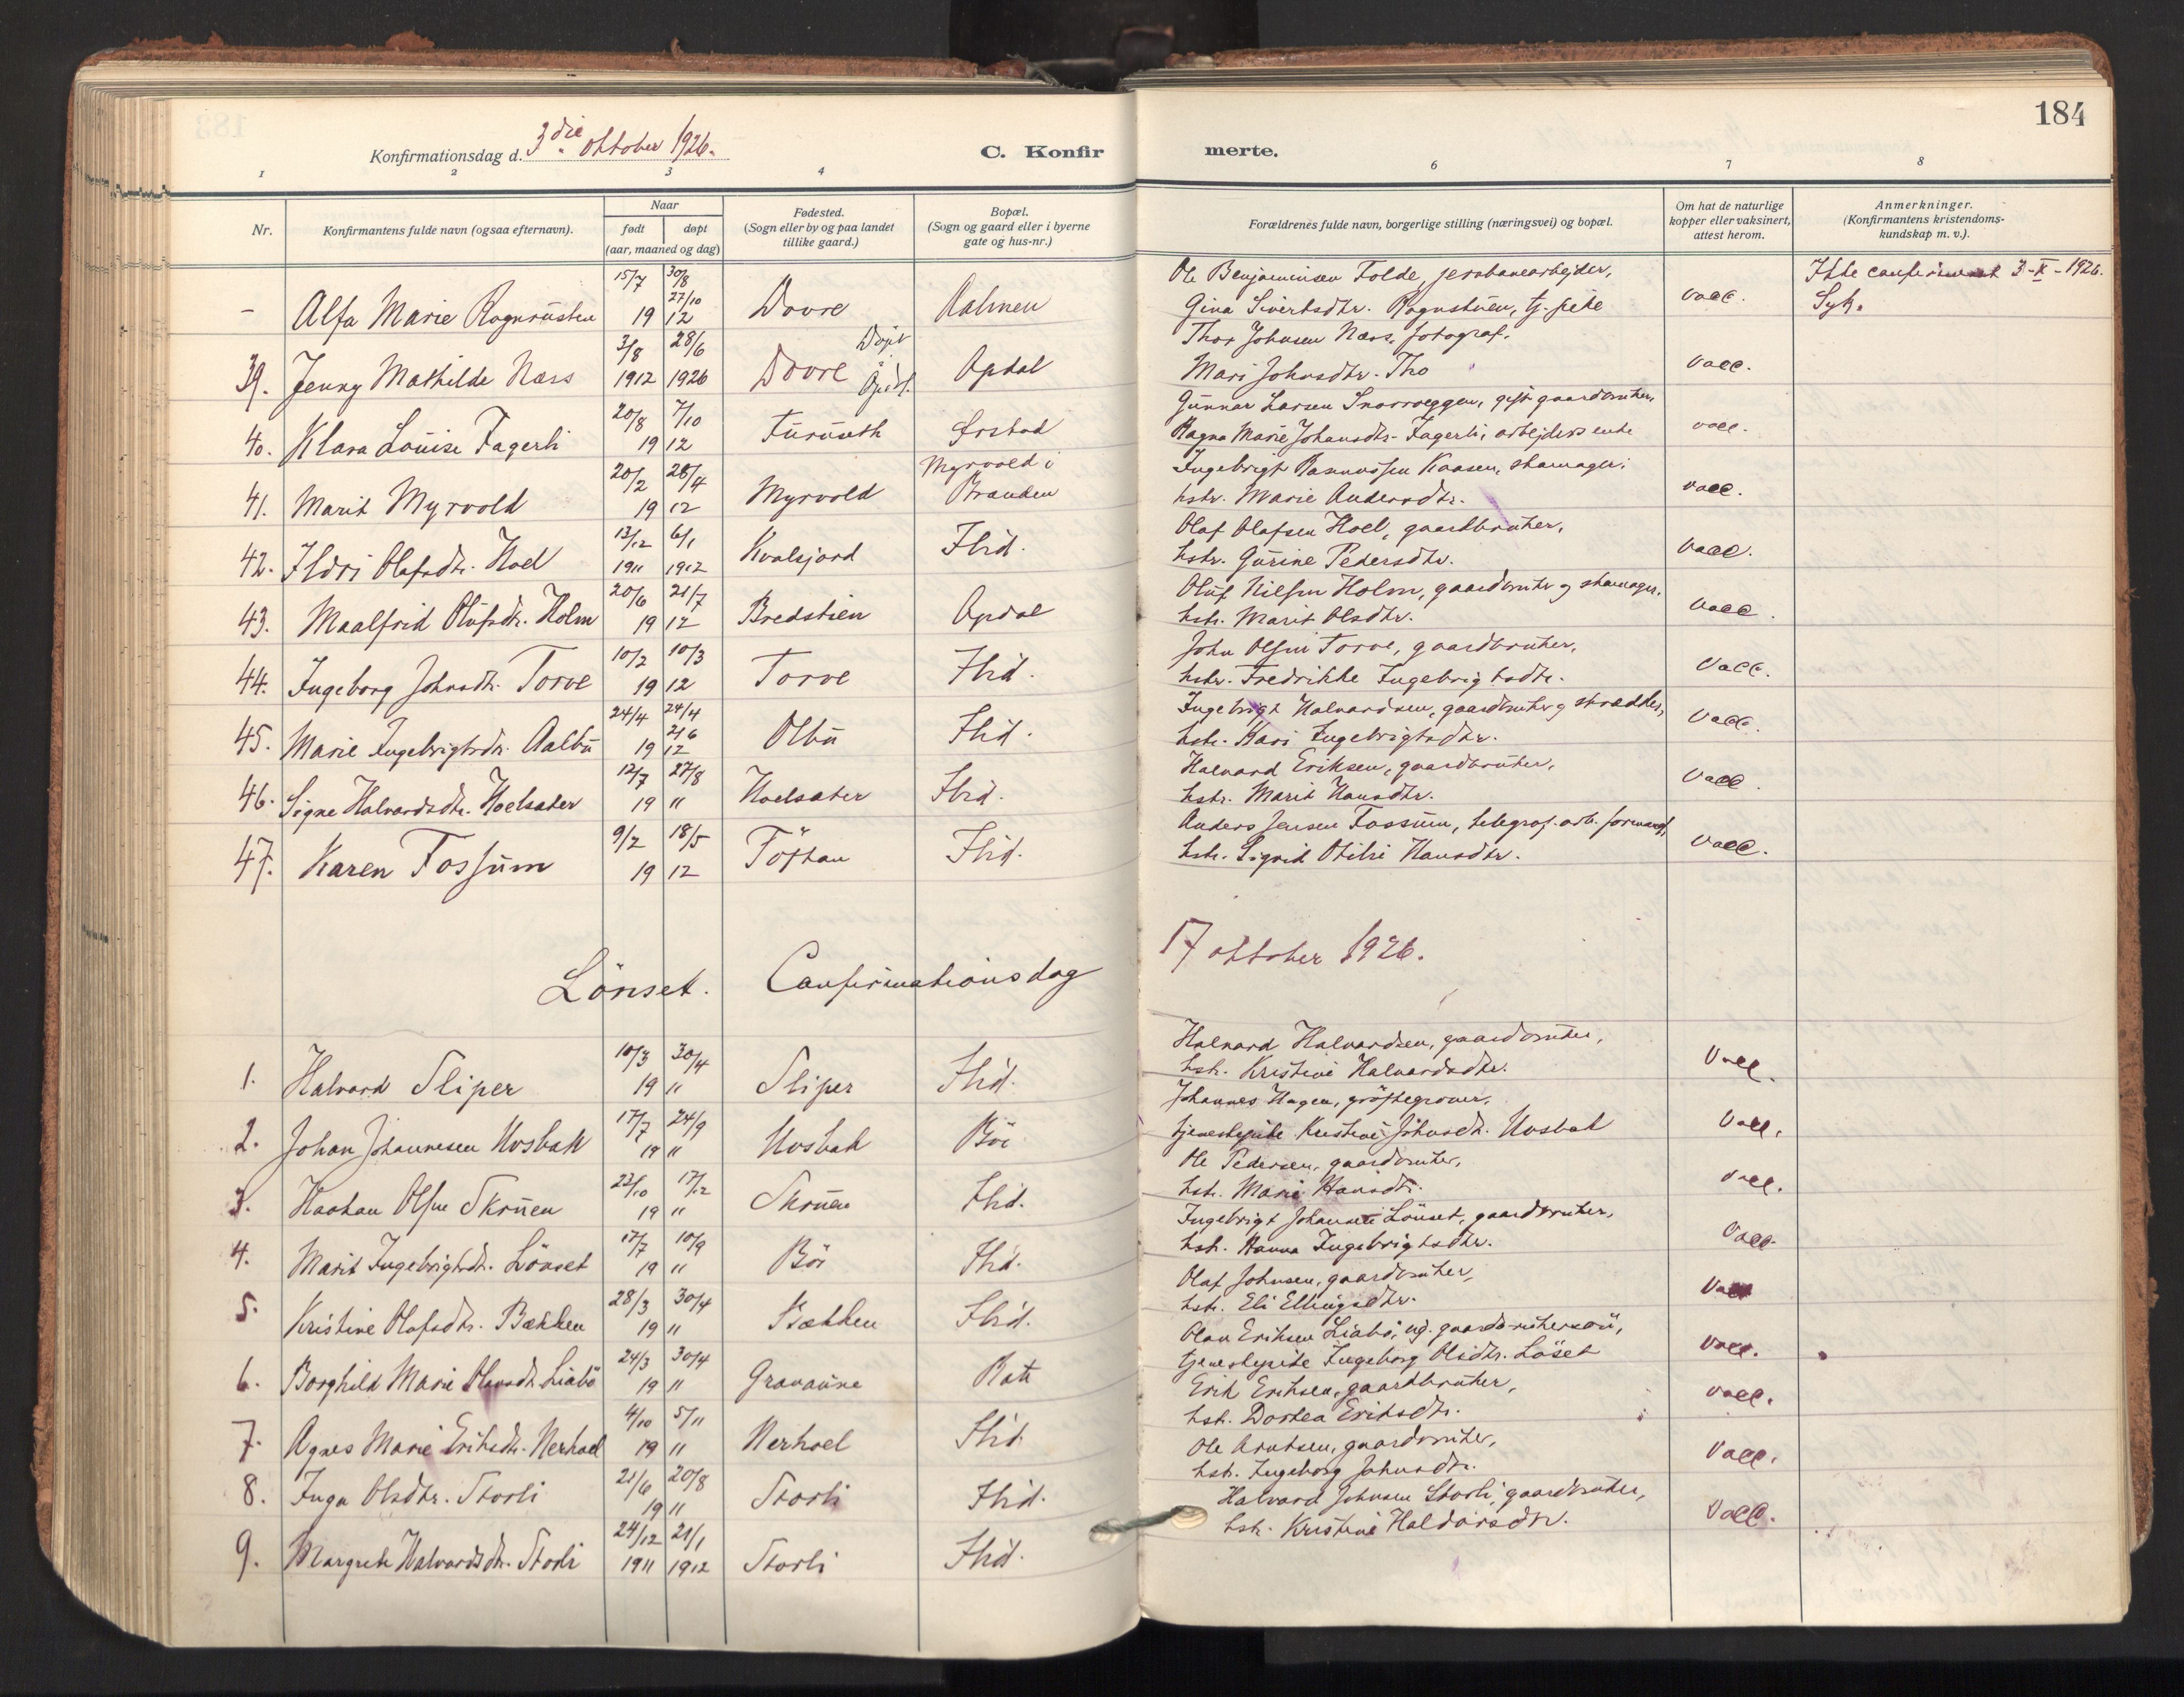 184
Konfirmationsdag d. 3die oktober 1926.
C. Konfirmerte.
1 2 3 4 6 7 8
Nr.
Konfirmantens fulde navn (ogsaa efternavn).
Naar
født døpt
(aar, maaned og dag)
Fødested.
(Sogn eller by og paa landet
tillike gaard.)
Bopæl.
(Sogn og gaard eller i byerne
gate og hus-nr.)
Forældrenes fulde navn, borgerlige stilling (næringsvei) og bopæl.
Om hat de naturlige
kopper eller vaksinert,
attest herom.
Anmerkninger.
(Konfirmantens kristendoms-
kundskap m. v.).
- Alfa Marie 15/7 19 30/8 27/10 12 Dovre Aalmen
Ole Benjaminsen Folde, jernbanearbejder,
Gina Sivertsdtr. tj. pike
vacc.
Ikke confirmert 3-X-1926.
Syk.
39. Jenny Mathilde Næss 3/8 1912 28/6 1926 Dovre Døpt i Opdal Opdal
Thor Johnsen Næss, fotograf,
Mari Johnsdtr. Tho
vacc.
40. Klara Louise Fagerli 20/8 7/10 19 12 Furuseth
Gunnar Larsen gift gaardbruker,
Ragna Marie Johansdtr. Fagerli, arbejders enke
vacc.
41. Marit Myrvold 20/2 28/4 19 12 Myrvold Myrvold i Brauken
Ingebrigt Rasmussen Kaasen, skomager,
hstr. Marie Andersdtr.
vacc.
42. Ildri Olafsdtr. Hoel 13/12 1911 6/1 1912 Kvalsjord Ibid.
Olaf Olafsen Hoel, gaardbruker,
hstr. Gurine Pedersdtr.
vacc.
43. Maalfrid Olufsdtr. Holm 20/6 21/7 19 12 Bredstien Opdal
Oluf Nielsen Holm, gaardbruker og skomager,
hstr. Marit Olsdtr.
vacc.
44. Ingeborg Johnsdtr. Torve 10/2 10/3 19 12 Torve Ibid.
John Olsen Torve, gaardbruker,
hstr. Fredrikke Ingebrigtsdtr.
vacc.
45. Marie Ingebrigtsdtr. Aalbu 24/4 19 24/4 2/6 12 Olbu Ibid.
Ingebrigt Halvardsen, gaardbruker og skrædder,
hstr. Kari Ingebrigtsdtr.
vacc.
46. Signe Halvardsdtr. Hoelsæter 12/7 27/8 19 11 Hoelsæter Ibid.
Halvard Eriksen, gaardbruker,
hstr. Marit Hansdtr.
vacc.
47. Karen Fossum 9/2 18/5 19 12 Töftan Ibid.
Anders Jensen Fossum, telegraf. arb. formand,
hstr. Sigrid Otilie Hansdtr.
vacc.
Lönset. Confirmationsdag 17 oktober 1926.
1. Halvard Sliper 10/3 30/4 19 11 Sliper Ibid.
Halvard Halvardsen, gaardbruker,
hstr. Kristine Halvardsdtr.
vacc.
2. Johan Johannesen Uvsbak 17/7 24/9 19 11 Uvsbak Böe
Johannes Hagen, gröftegraver,
tjenestepike Kristine Johnsdtr. Uvsbak
vacc.
3. Haakan Olsen Skruen 22/10 17/12 19 11 Skruen Ibid.
Ole Pedersen, gaardbruker,
hstr. Marie Hansdtr.
vacc.
4. Marit Ingebrigtsdtr. Lönset 17/7 10/9 19 11 Böe Ibid.
Ingebrigt Johansen Lönset, gaardbruker,
hstr. Hanna Ingebrigtsdtr.
vacc.
5. Kristine Olafsdtr. Bækken 28/3 30/4 19 11 Bækken Ibid.
Olaf Johnsen, gaardbruker,
hstr. Eli Ellingsdtr.
vacc
6. Borghild Marie Olavsdtr. Liabö 24/3 30/4 19 11 Gravaune
Olav Eriksen Liabö, ug. gaardbrukersön,
tjenestepike Ingeborg Olsdtr. Löset
vacc.
7. Agnes Marie Eriksdtr. Nerhoel 4/10 5/11 19 11 Nerhoel Ibid.
Erik Eriksen, gaardbruker,
hstr. Dortea Eriksdtr.
vacc.
8. Inga Olsdtr. Storli 21/6 20/8 19 11 Storli Ibid.
Ole Arntsen, gaardbruker,
hstr. Ingeborg Johnsdtr.
vacc.
9. Margrete Halvardsdtr. Storli 24/12 1911 21/1 1912 Storli Ibid.
Halvard Johnsen Storli, gaardbruker,
hstr. Kristine Haldorsdtr.
vacc.